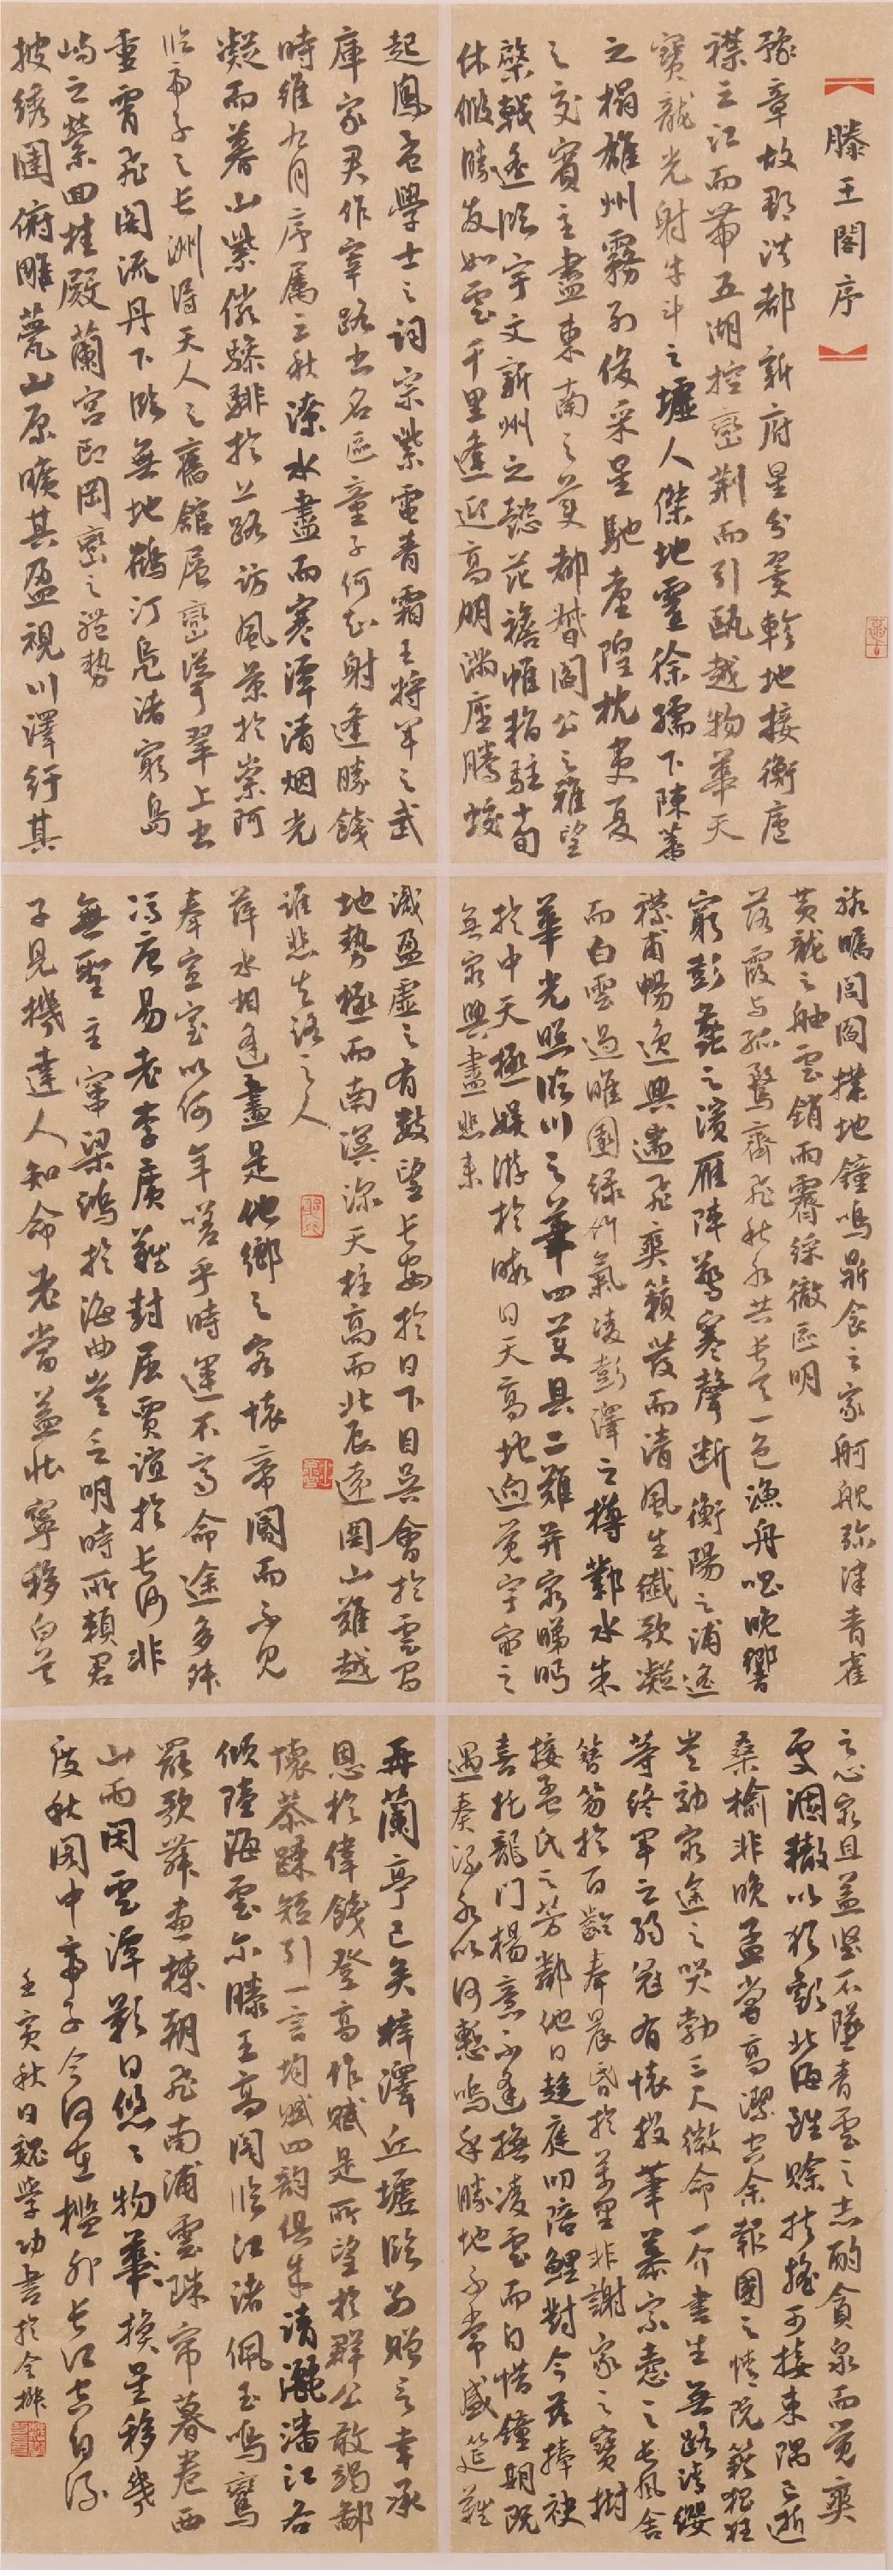 滕王閣序
豫章故郡洪都新府星分翼軫地接衡廬
襟三江而帶五湖控蠻荊而引甌越物華天
寶龍光射牛斗之墟人傑地靈徐孺下陳蕃
之榻雄州霧列俊采星馳臺隍枕夷夏
之交賓主盡東南之美都督閻公之雅望
棨戟遙臨宇文新州之懿範襜帷暫駐十旬
休假勝友如雲千里逢迎高朋滿座騰蛟
起鳳孟學士之詞宗紫電青霜王將軍之武
庫家君作宰路出名區童子何知躬逢勝餞
時維九月序屬三秋潦水盡而寒潭清烟光
凝而暮山紫儼驂騑於上路訪風景於崇阿
臨帝子之長洲得天人之舊館層巒聳翠上出
重霄飛閣流丹下臨無地鶴汀鳧渚窮島
嶼之縈回桂殿蘭宮即岡巒之體勢
披綉闥俯雕甍山原曠其盈視川澤紆其
駭矚閭閻撲地鐘鳴鼎食之家舸艦彌津青雀
黃龍之舳雲銷雨霽綵徹區明
落霞與孤鶩齊飛秋水共長天一色漁舟唱晚響
窮彭蠡之濱雁陣驚寒聲斷衡陽之浦遙
襟甫暢逸興遄飛爽籟發而清風生纖歌凝
而白雲遏睢園綠竹氣凌彭澤之樽鄴水朱
華光照臨川之筆四美具二難并窮睇眄
於中天極娛游於暇日天高地迥覺宇宙之
無窮興盡悲來
識盈虛之有數望長安於日下目吳會於雲間
地勢極而南溟深天柱高而北辰遠關山難越
誰悲失路之人
萍水相逢盡是他鄉之客懷帝閽而不見
奉宣室以何年嗟乎時運不齊命途多舛
馮唐易老李廣難封屈賈誼於長沙非
無聖主竄梁鴻於海曲豈乏明時所賴君
子見機達人知命老當益壯寧移白首
之心窮且益堅不墜青雲之志酌貪泉而覺爽
處涸轍以猶歡北海雖賒扶搖可接東隅已逝
桑榆非晚孟嘗高潔空余報國之情阮籍猖狂
豈効窮途之哭勃三尺微命一介書生無路請纓
等終軍之弱冠有懷投筆慕宗愨之長風舍
簪笏於百齡奉晨昏於萬里非謝家之寶樹
接孟氏之芳鄰他日趨庭叨陪鯉對今茲捧袂
喜托龍門楊意不逢撫凌雲而自惜鐘期既
遇奏流水以何慙嗚呼勝地不常盛筵難
再蘭亭已矣梓澤丘墟臨別贈言幸承
恩於偉餞登高作賦是所望於群公敢竭鄙
懷恭疎短引一言均賦四韵俱成請灑潘江各
傾陸海雲爾滕王高閣臨江渚佩玉鳴鸞
罷歌舞畫棟朝飛南浦雲珠帘暮卷西
山雨閑雲潭影日悠々物華換星移幾
度秋閣中帝子今何在檻外長江空自流
壬寅秋日魏學功書於金樅